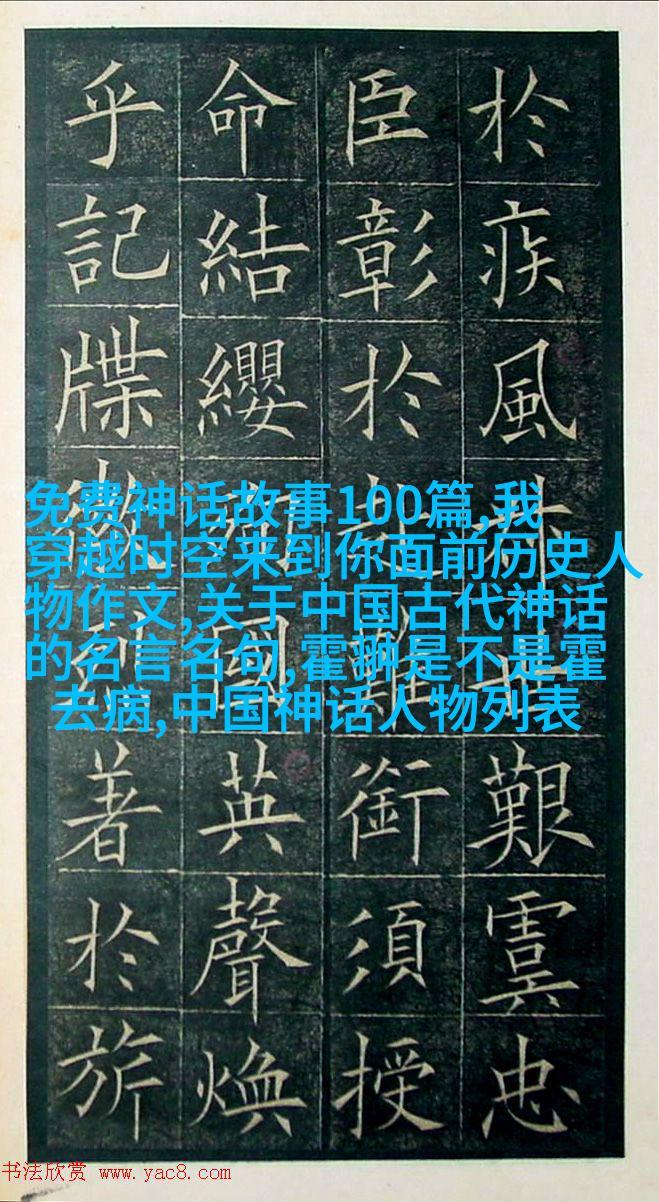 於疾風叔世艱虞忠
臣彰於赴難銜須授
命結纓殉國英聲煥
乎記牒徽烈著於旂
免费神话故事100篇,我
穿越时空来到你面前历史人
物作文,关于中国古代神话
的名言名句,霍翀是不是霍
去病,中国神话人物列表
书法欣赏 www.yac8.com